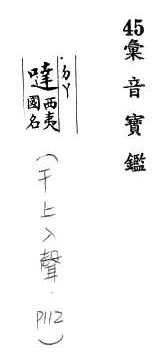 45彙音寶鑑
˙ㄉㄚ
噠西夷
國名
(干上入聲.P112)